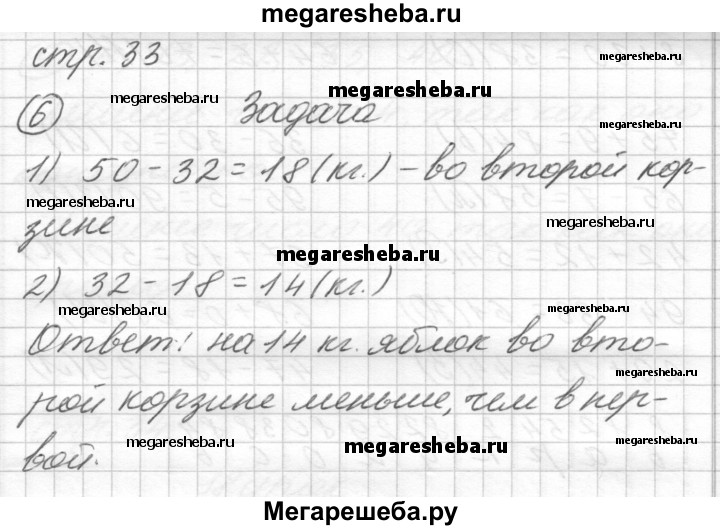 megaresheba.ru
стр. 33
megaresheba.ru
megaresheba.ru
megaresheba.ru
6 Задача
megaresheba.ru
1) 50 - 32 = 18 (кг.) - во второй кор-
megaresheba.ru
зине
megaresheba.ru
megaresheba.ru
2) 32 - 18 = 14 (кг.)
megaresheba.ru
megaresheba.ru
Ответ: на 14 кг. яблок во вто-
megaresheba.ru
рой корзине меньше, чем в пер-
вой.
megaresheba.ru
megaresheba.ru
megaresheba.ru
Мегарешеба.ру